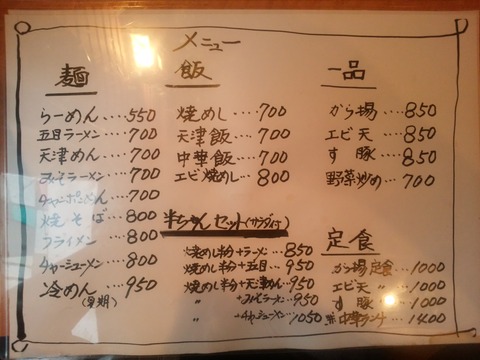 メニュー
麺
らーめん‥‥550
五目ラーメン‥‥700
天津めん‥‥700
みそラーメン‥‥700
チャンポンめん‥‥700
焼そば‥‥800
フライメン‥‥800
チャーシューメン‥‥800
冷めん‥‥950
(夏期)
飯
焼めし‥‥700
天津飯‥‥700
中華飯‥‥700
エビ焼めし‥‥800
半ちゃんセット(サラダ付)
焼めし半分+ラーメン‥850
焼めし半分+五目‥950
焼めし半分+天津めん‥950
〃 +みそラーメン‥950
〃 +チャーシューメン‥1050
一品
から揚‥‥850
エビ天‥‥850
す豚‥‥850
野菜炒め‥‥700
定食
から揚定食‥‥1000
エビ天 〃 ‥‥1000
す豚 〃 ‥‥1000
中華ランチ‥‥1400